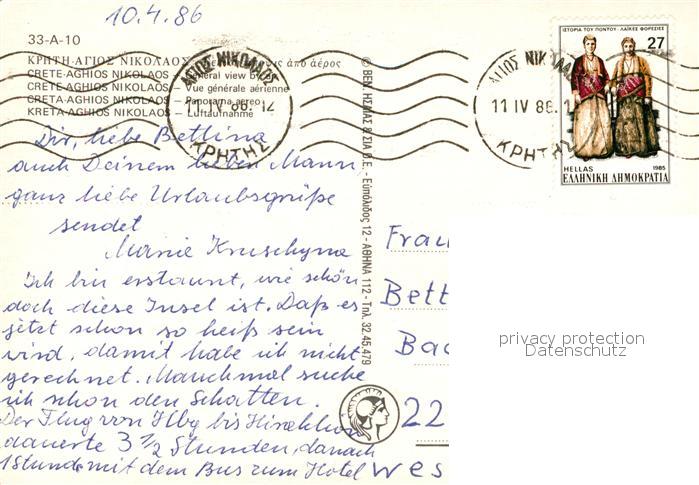 10.4.86
33-A-10
ΚΡΗΤΗ-ΑΓΙΟΣ ΝΙΚΟΛΑΟΣ
ἀπό ἀέρος
CRETE-AGHIOS NIKOLAOS – General view by air
CRETE-AGHIOS NIKOLAOS – Vue générale aérienne
CRETA-AGHIOS NIKOLAOS – Panorama aereo
KRETA-AGHIOS NIKOLAOS – Luftaufnahme
ΑΓΙΟΣ ΝΙΚΟΛΑΟΣ
11 IV 86. 12
ΚΡΗΤΗΣ
ΑΓΙΟΣ ΝΙΚΟΛΑ
11 IV 86. 1
ΚΡΗΤΗΣ
ΙΣΤΟΡΙΑ ΤΟΥ ΠΟΝΤΟΥ - ΛΑΪΚΕΣ ΦΟΡΕΣΙΕΣ
27
HELLAS 1985
ΕΛΛΗΝΙΚΗ ΔΗΜΟΚΡΑΤΙΑ
Dir, liebe Bettina
auch Deinem lieben Mann
ganz liebe Urlaubsgrüße
sendet
Marie Kruschyna
Ich bin erstaunt, wie schön
doch diese Insel ist. Daß es
jetzt schon so heiß sein
wird, damit habe ich nicht
gerechnet. Manchmal suche
ich schon den Schatten.
Der Flug von Hbg bis Hiraklion
dauerte 3 1/2 Stunden, danach
1 Stunde mit dem Bus zum Hotel
& ΣΙΑ Ο.Ε. - Εὐπόλιδος 12 - ΑΘΗΝΑ 112 - Τηλ. 32.45.479
Frau
Bett
Bac
22
Wes
privacy protection
Datenschutz